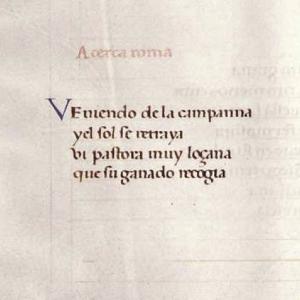 Acerca roma
VEniendo de la campanna
y el sol se retraya
vi pastora muy loçana
que su ganado recogia